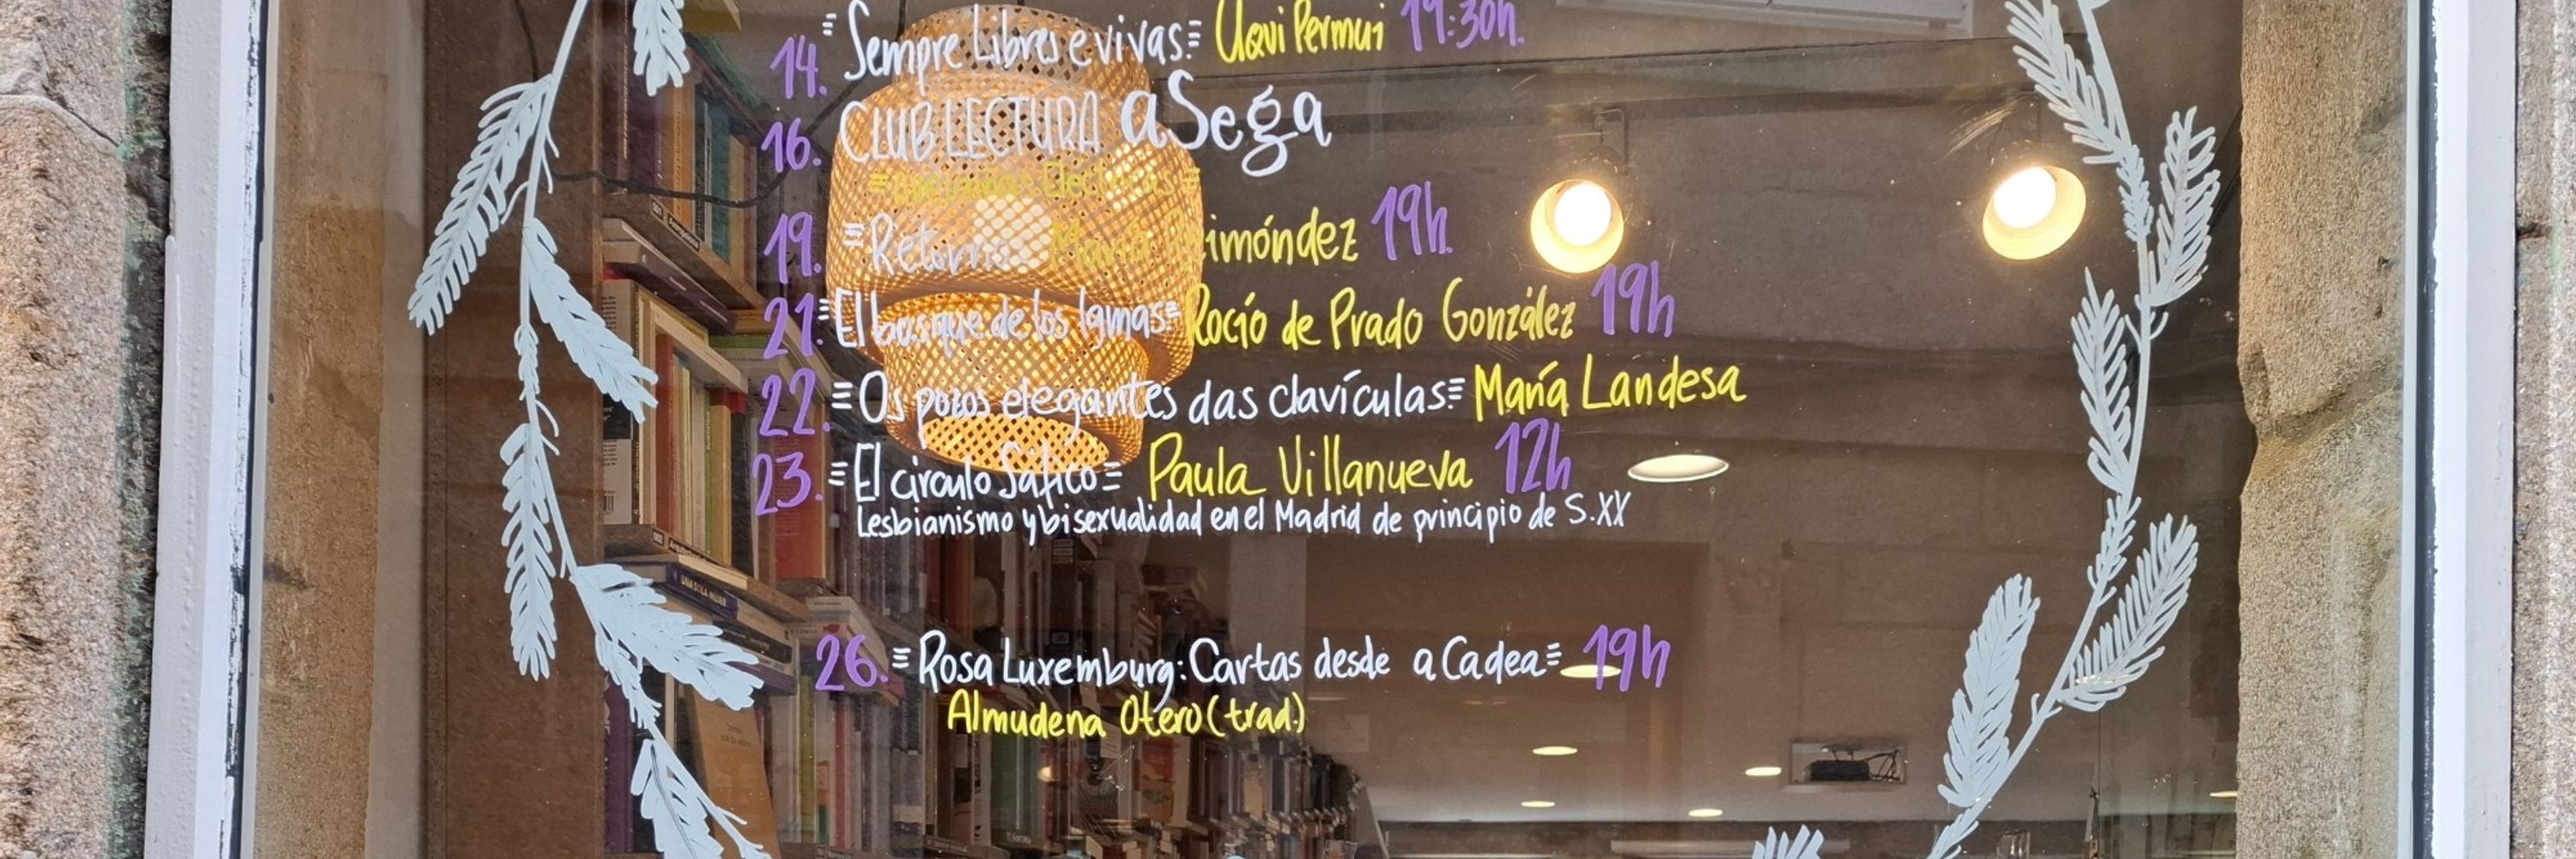 14. "Sempre Libres e vivas" Uqui Permui 19:30h.
16. CLUB LECTURA aSega
19. "Retorno" María Reimóndez 19h.
21. "El bosque de los lamas" Rocío de Prado González 19h
22. "Os pozos elegantes das clavículas" María Landesa
23. "El circulo Sáfico" Paula Villanueva 12h
Lesbianismo y bisexualidad en el Madrid de principio de S.XX
26. "Rosa Luxemburg: Cartas desde a Cadea" 19h
Almudena Otero (trad.)
UNA SOLA MUJER